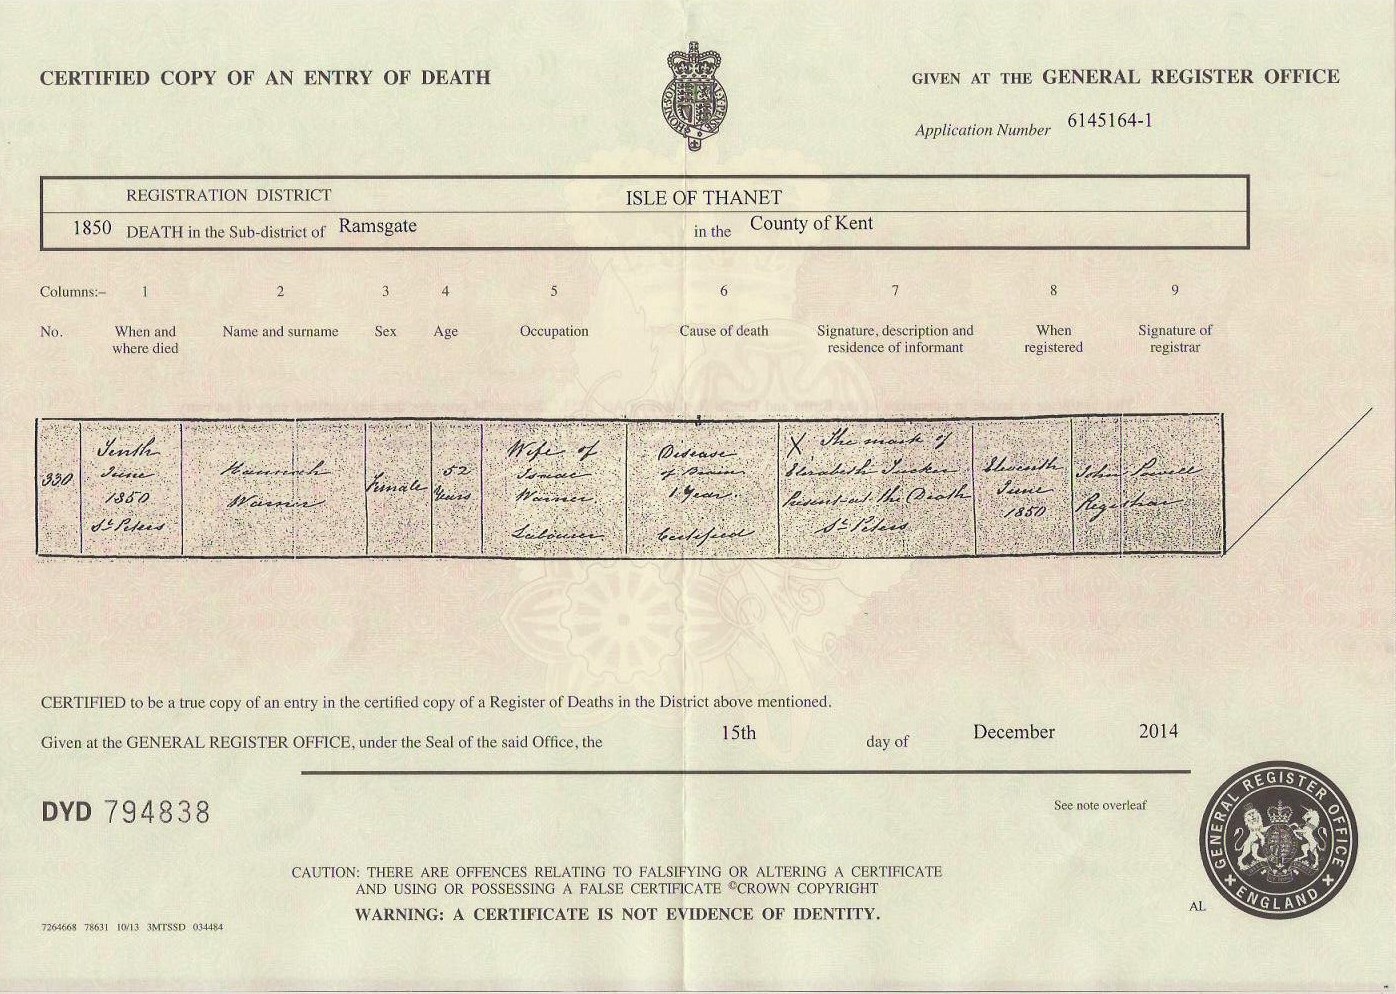 CERTIFIED COPY OF AN ENTRY OF DEATH
GIVEN AT THE GENERAL REGISTER OFFICE
HONI·SOI Y·PENSE
Application Number 6145164-1
REGISTRATION DISTRICT ISLE OF THANET
1850 DEATH in the Sub-district of Ramsgate in the County of Kent
Columns:– 1 2 3 4 5 6 7 8 9
No. When and where died Name and surname Sex Age Occupation Cause of death Signature, description and residence of informant When registered Signature of registrar
330
Tenth
June
1850
St Peters
Hannah
Warner
Female
52
Years
Wife of
Isaac
Warner
Labourer
Disease
of Brain
1 Year.
Certified
X The mark of
Elizabeth Tucker
Present at the Death
St Peters
Eleventh
June
1850
John Powell
Registrar
CERTIFIED to be a true copy of an entry in the certified copy of a Register of Deaths in the District above mentioned.
Given at the GENERAL REGISTER OFFICE, under the Seal of the said Office, the 15th day of December 2014
DYD 794838
See note overleaf
GENERAL REGISTER OFFICE
ENGLAND
CAUTION: THERE ARE OFFENCES RELATING TO FALSIFYING OR ALTERING A CERTIFICATE
AND USING OR POSSESSING A FALSE CERTIFICATE ©CROWN COPYRIGHT
WARNING: A CERTIFICATE IS NOT EVIDENCE OF IDENTITY.
AL
7264668 78631 10/13 3MTSSD 034484